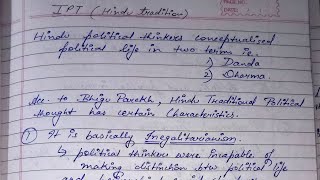 PAGE NO.
DATE
IPT (Hindu tradition)
Hindu political thinkers conceptualised
political life in two terms i.e.
1) Danda
2) Dharma.
Acc. to Bhigu Parekh, Hindu Traditional Political
thought has certain characteristics.
① It is basically Inegalitarianism.
↳ political thinkers were incapable of
making distinction btw political life
and